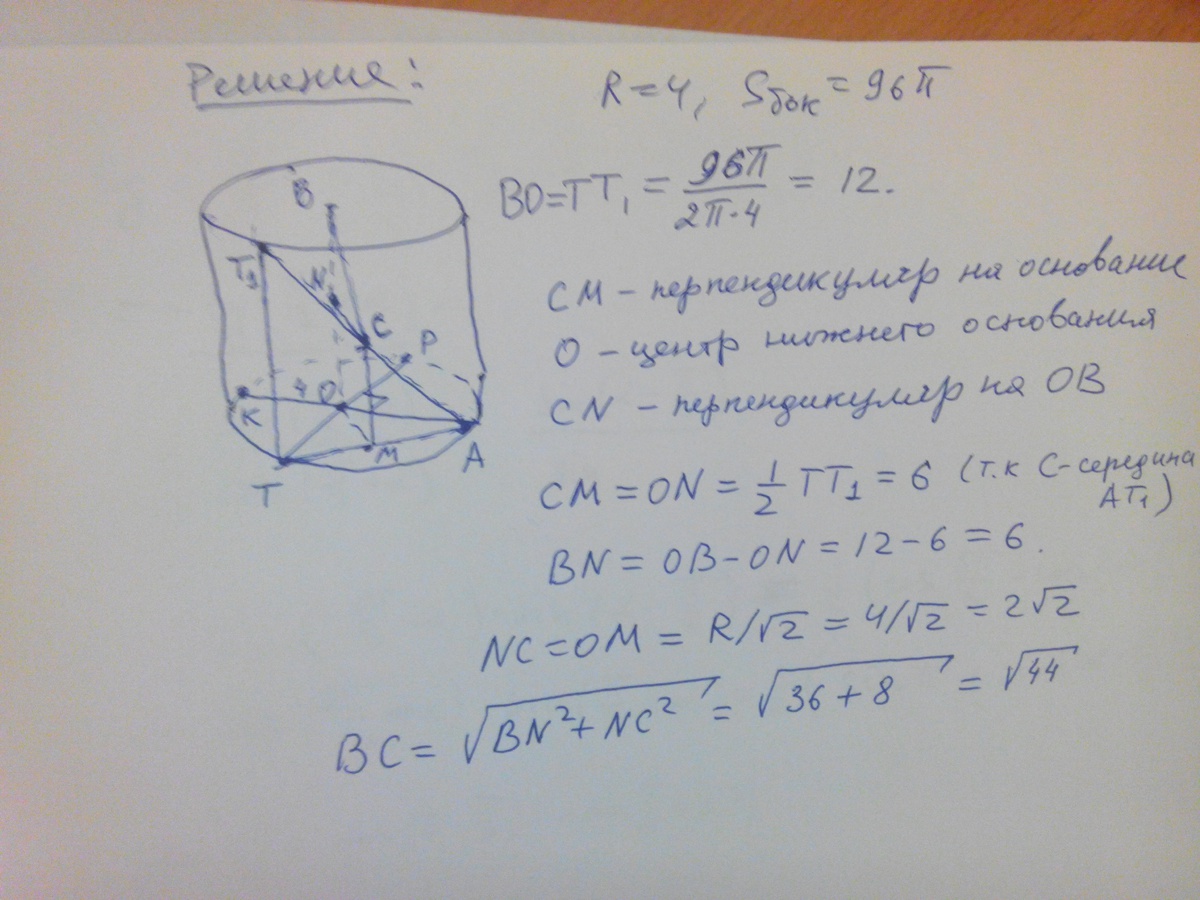 Решение:
R = 4, Sбок = 96π
BO = TT₁ = 96π / (2π·4) = 12.
CM – перпендикуляр на основание
O – центр нижнего основания
CN – перпендикуляр на OB
CM = ON = 1/2 TT₁ = 6 (т.к C-середина AT₁)
BN = OB – ON = 12 – 6 = 6.
NC = OM = R/√2 = 4/√2 = 2√2
BC = √(BN² + NC²) = √(36 + 8) = √44
B
T₁
N
C
P
4
O
K
M
A
T